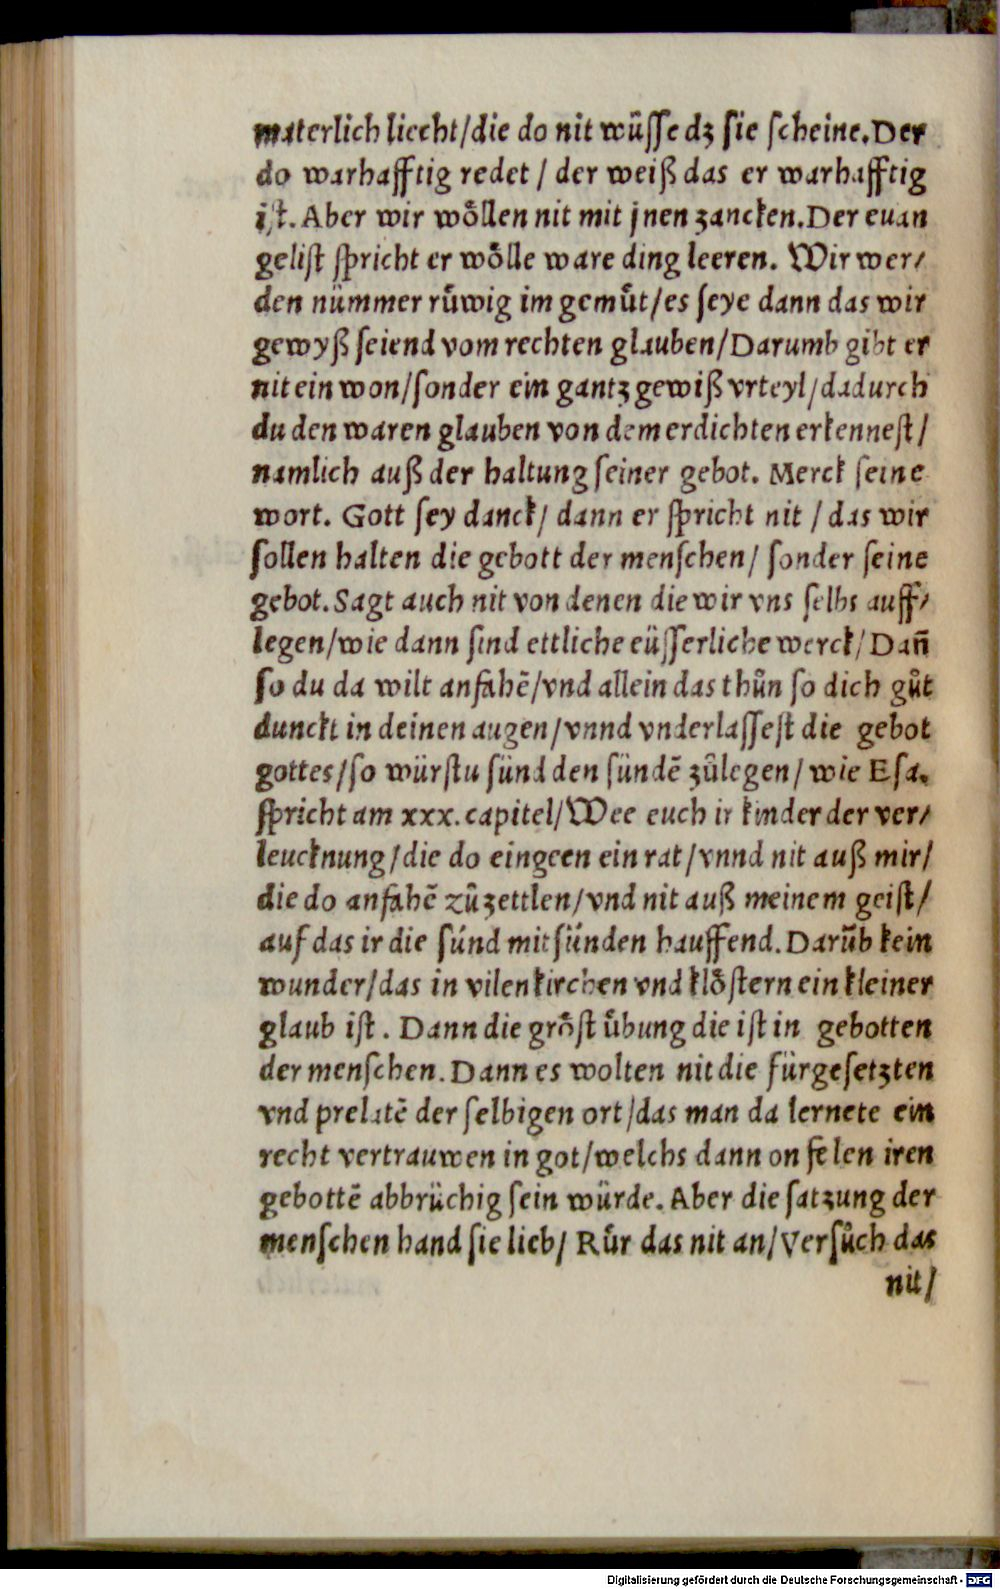 materlich liecht/die do nit wüſſe dʒ ſie ſcheine.Der
do warhafftig redet / der weiß das er warhafftig
iſt. Aber wir woͤllen nit mit jnen zancken.Der euan
geliſt ſpricht er woͤlle ware ding leeren. Wir wer/
den nümmer ruͤwig im gemuͤt/es ſeye dann das wir
gewyß ſeiend vom rechten glauben/Darumb gibt er
nit ein won/ſonder ein gantz gewiß vrteyl/dadurch
du den waren glauben von dem erdichten erkenneſt/
namlich auß der haltung ſeiner gebot. Merck ſeine
wort. Gott ſey danck/ dann er ſpricht nit / das wir
ſollen halten die gebott der menſchen/ ſonder ſeine
gebot.Sagt auch nit von denen die wir vns ſelbs auff/
legen/wie dann ſind ettliche eüſſerliche werck/Dañ
ſo du da wilt anfahē/vnd allein das thuͦn ſo dich guͦt
dunckt in deinen augen/vnnd vnderlaſſeſt die gebot
gottes/ſo würſtu ſünd den ſündē zuͦlegen/ wie Eſa.
ſpricht am xxx. capitel/Wee euch ir kinder der ver/
leucknung/die do eingeen ein rat/vnnd nit auß mir/
die do anfahē zuͦzettlen/vnd nit auß meinem geiſt/
auf das ir die ſünd mit ſünden hauffend.Darūb kein
wunder/das in vilen kirchen vnd kloͤſtern ein kleiner
glaub iſt . Dann die groͤſt uͤbung die iſt in gebotten
der menſchen.Dann es wolten nit die fürgeſetzten
vnd prelatē der ſelbigen ort/das man da lernete ein
recht vertrauwen in got/welchs dann on felen iren
gebottē abbrüchig ſein würde. Aber die ſatzung der
menſchen hand ſie lieb/ Ruͤr das nit an/Verſuͦch das
nit/
Digitalisierung gefördert durch die Deutsche Forschungsgemeinschaft - DFG